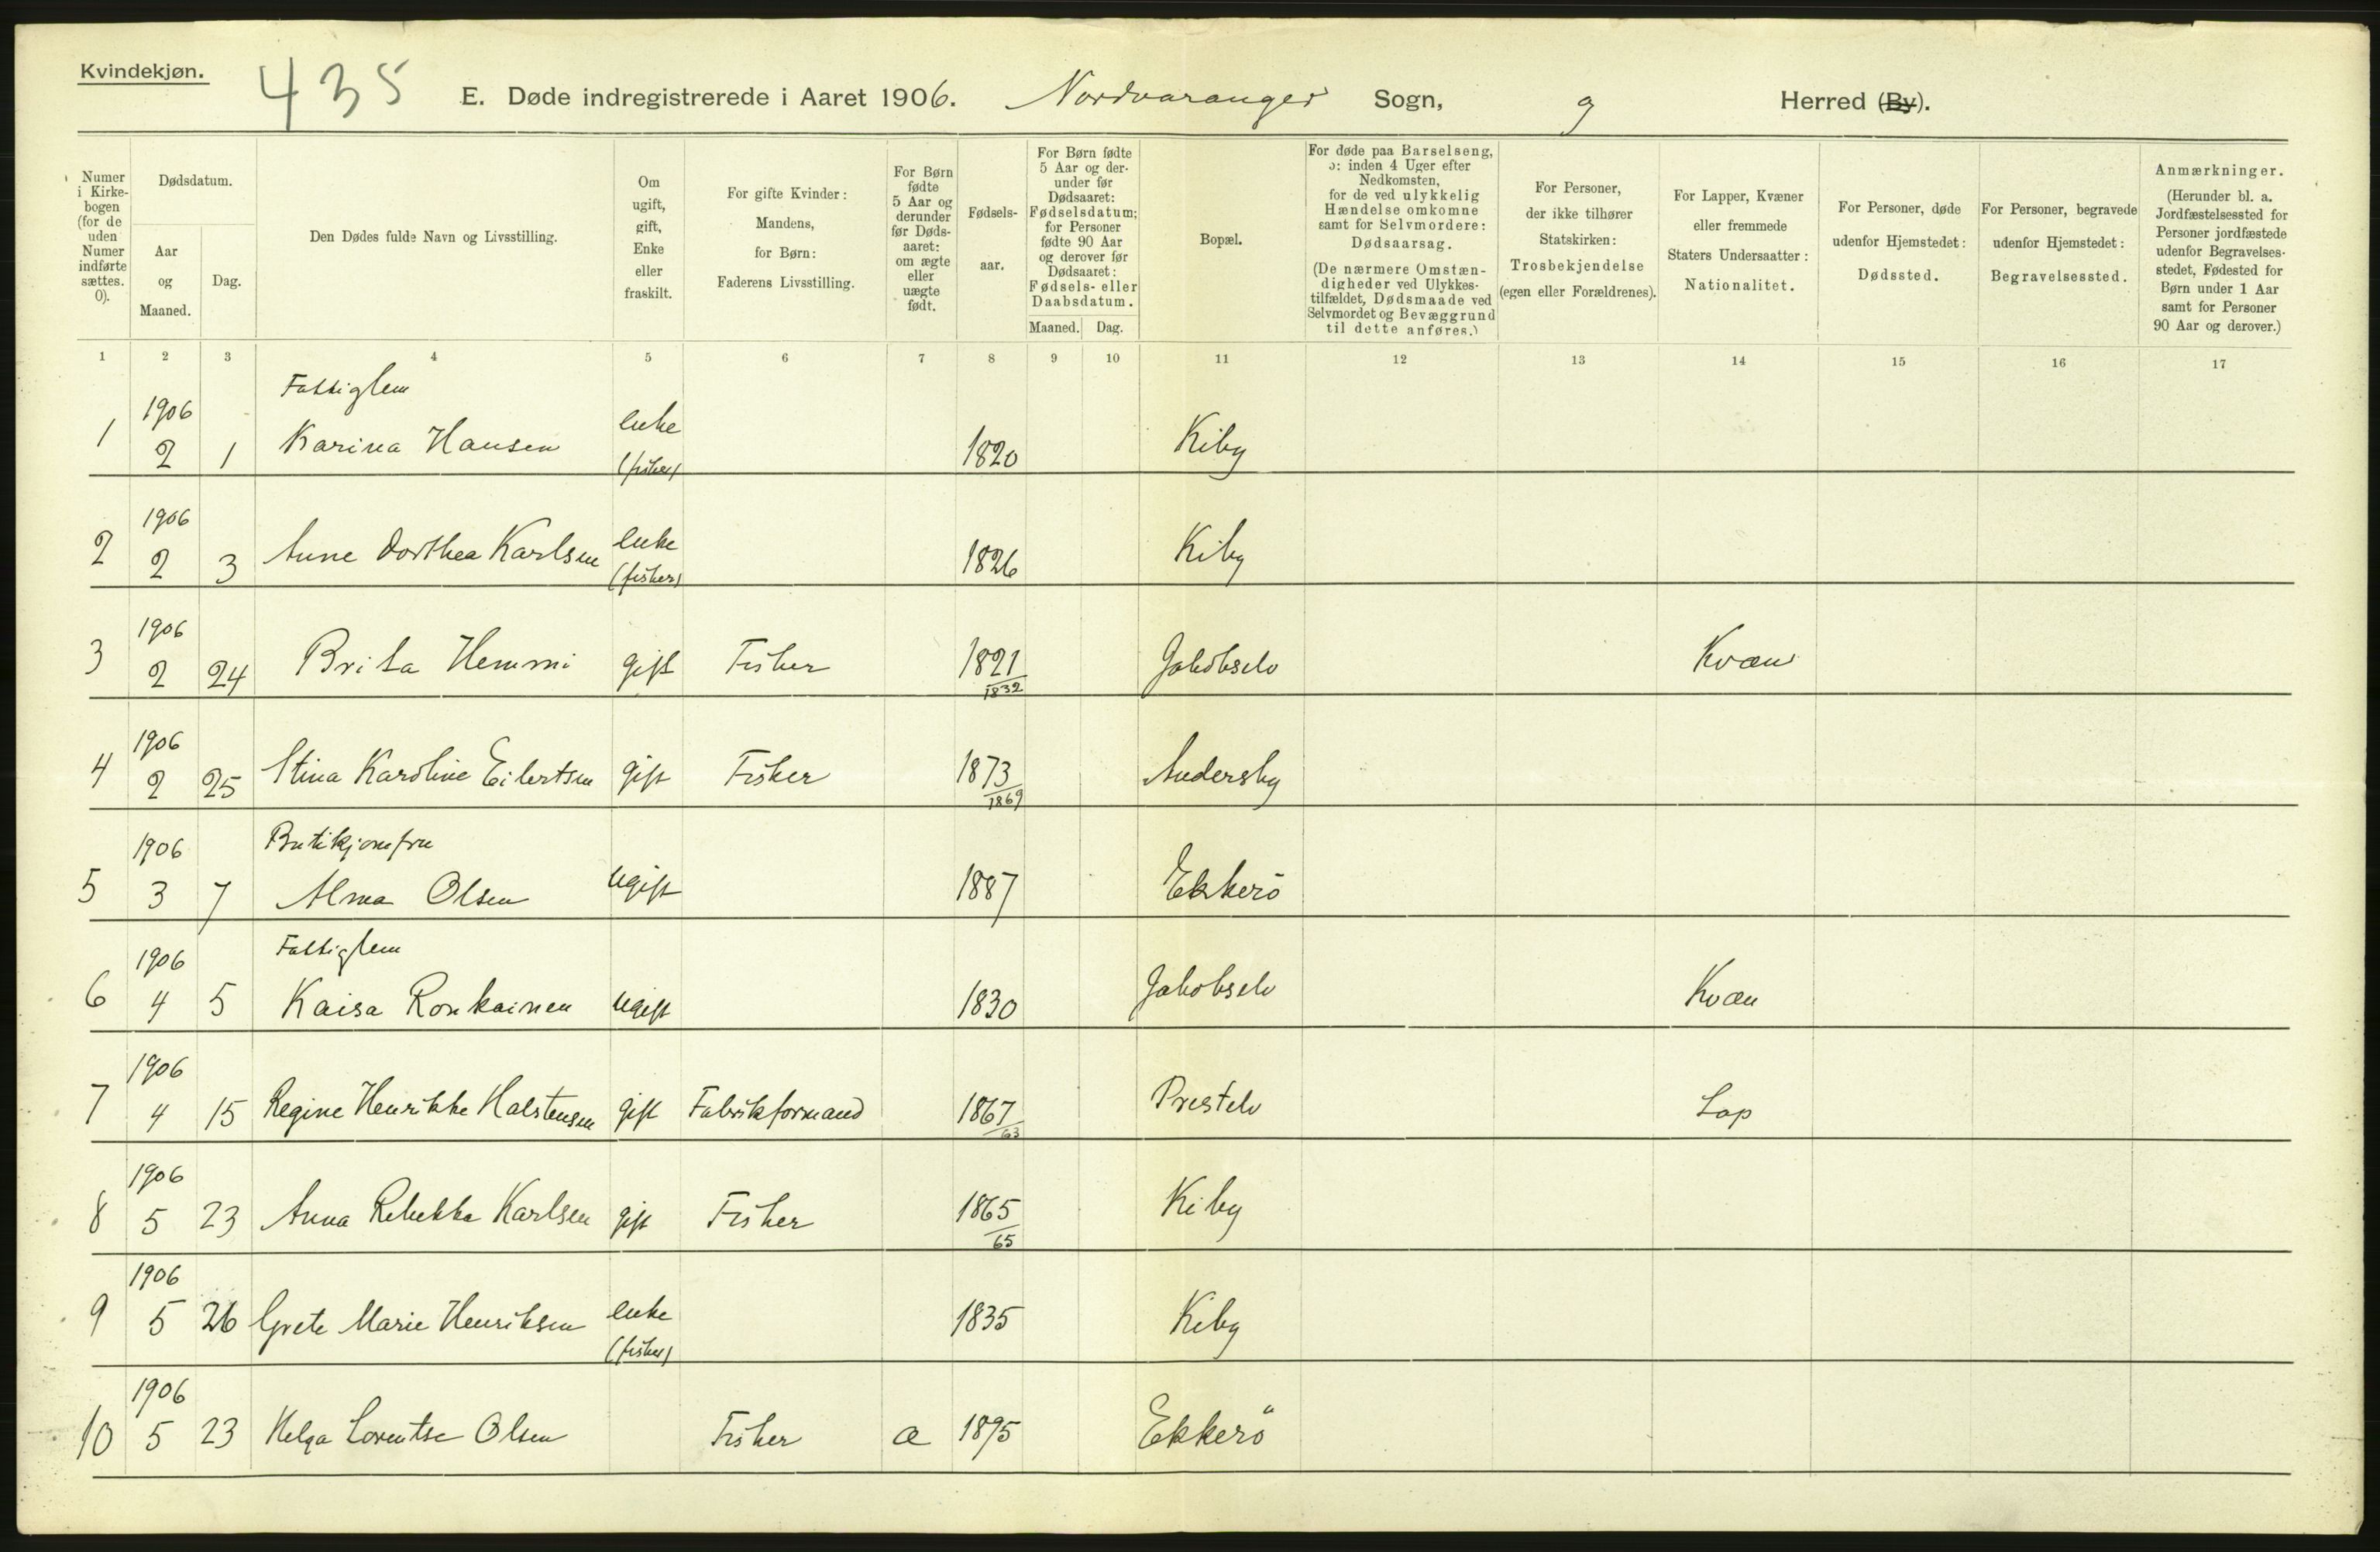 Kvindekjøn.
435
E. Døde indregistrerede i Aaret 1906. Nordvaranger Sogn, og Herred (By).
Numer i Kirkebogen (for de uden Numer indførte sættes. 0).
Dødsdatum.
Aar og Maaned.
Dag.
Den Dødes fulde Navn og Livsstilling.
Om ugift, gift, Enke eller fraskilt.
For gifte Kvinder: Mandens, for Børn: Faderens Livsstilling.
For Børn fødte 5 Aar og derunder før Dødsaaret: om ægte eller uægte født.
Fødselsaar.
For Børn fødte 5 Aar og derunder før Dødsaaret: Fødselsdatum; for Personer fødte 90 Aar og derover før Dødsaaret: Fødsels- eller Daabsdatum.
Maaned. Dag.
Bopæl.
For døde paa Barselseng, ɔ: inden 4 Uger efter Nedkomsten, for de ved ulykkelig Hændelse omkomne samt for Selvmordere: Dødsaarsag.
(De nærmere Omstændigheder ved Ulykkestilfældet, Dødsmaade ved Selvmordet og Bevæggrund til dette anføres.)
For Personer, der ikke tilhører Statskirken: Trosbekjendelse (egen eller Forældrenes).
For Lapper, Kvæner eller fremmede Staters Undersaatter: Nationalitet.
For Personer, døde udenfor Hjemstedet: Dødssted.
For Personer, begravede udenfor Hjemstedet: Begravelsessted.
Anmærkninger.
(Herunder bl. a. Jordfæstelsessted for Personer jordfæstede udenfor Begravelsesstedet, Fødested for Børn under 1 Aar samt for Personer 90 Aar og derover.)
1 2 3 4 5 6 7 8 9 10 11 12 13 14 15 16 17
1906 Fattiglem enke
1 2 1 Karina Hansen (fisker) 1820 Kiby
1906
2 2 3 Anne Dorthea Karlsen enke (fisker) 1826 Kiby
1906
3 2 24 Brita Hemmi gift Fisker 1821 Jakobselv Kvæn
1832
1906
4 2 25 Stina Karoline Eilertsen gift Fisker 1873 Andersby
1869
1906 Butikjomfru
5 3 7 Alma Olsen ugift 1887 Ekkerö
1906 Fattiglem
6 4 5 Kaisa Ronkainen ugift 1830 Jakobselv Kvæn
1906
7 4 15 Regine Henrikke Halstensen gift Fabrikformand 1867 Prestelv Lap
63
1906
8 5 23 Anna Rebekka Karlsen gift Fisker 1865 Kiby
65
1906
9 5 26 Grete Marie Henriksen enke (fisker) 1835 Kiby
1906
10 5 23 Helga Lorentse Olsen Fisker æ 1895 Ekkerö